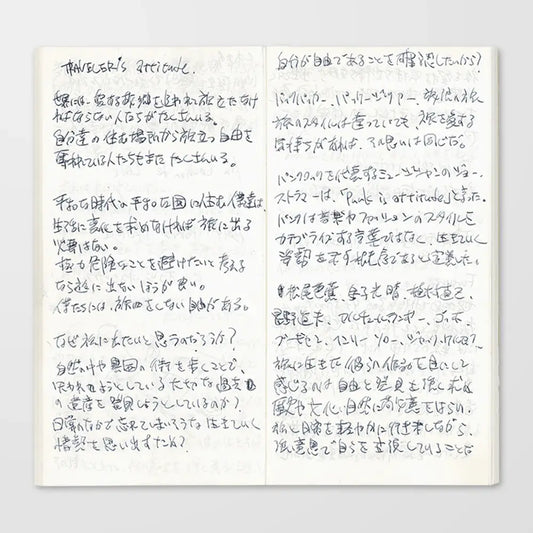 TRAVELER'S attitude.
世界には、愛する故郷を追われ旅をたたなけ
ればならない人たちがたくさんいる。
自分達の住む場所から旅立つ自由を
奪われている人たちもまた たくさんいる。
平和な時代の平和な国に住む僕達は、
生活に変化を求めなければ旅に出る
必要はない。
極力危険なことを避けたいと考える
なら旅に出ないほうが良い。
僕たちには、旅をしない自由がある。
なぜ旅に出たいと思うのだろうか?
自然の中や異国の街を歩くことで、
失われようとしている大切な過去
の遺産を発見しようとしているのか?
日常のなかで忘れてしまいそうな 生きていく
情熱を思い出すため?
自分が自由であることを確認したいから?
バックパッカー、バッグジャー、放浪の旅
旅のスタイルは違っていても、旅を愛する
気持ちがあれば、アル思いは同じだ。
パンクロックを代表するミュージシャンのジョー・
ストラマーは、「Punk is attitude」と言った。
パンクは音楽やファッションのスタイルを
カテゴライズする言葉ではなく、生きていく
姿勢を示す概念であると定義した。
松尾芭蕉、金子光晴、植村直己、
星野道夫、ゴッホ、
ヘンリー ソロー、ジャック
旅に生きた 彼らの作品を目にして
感じるのは 自由と発見を強く求め
歴史や文化、自然に敬意をはらい、
旅と日常を軽やかに行き来しながら、
強い意思で自らを支援していることだ